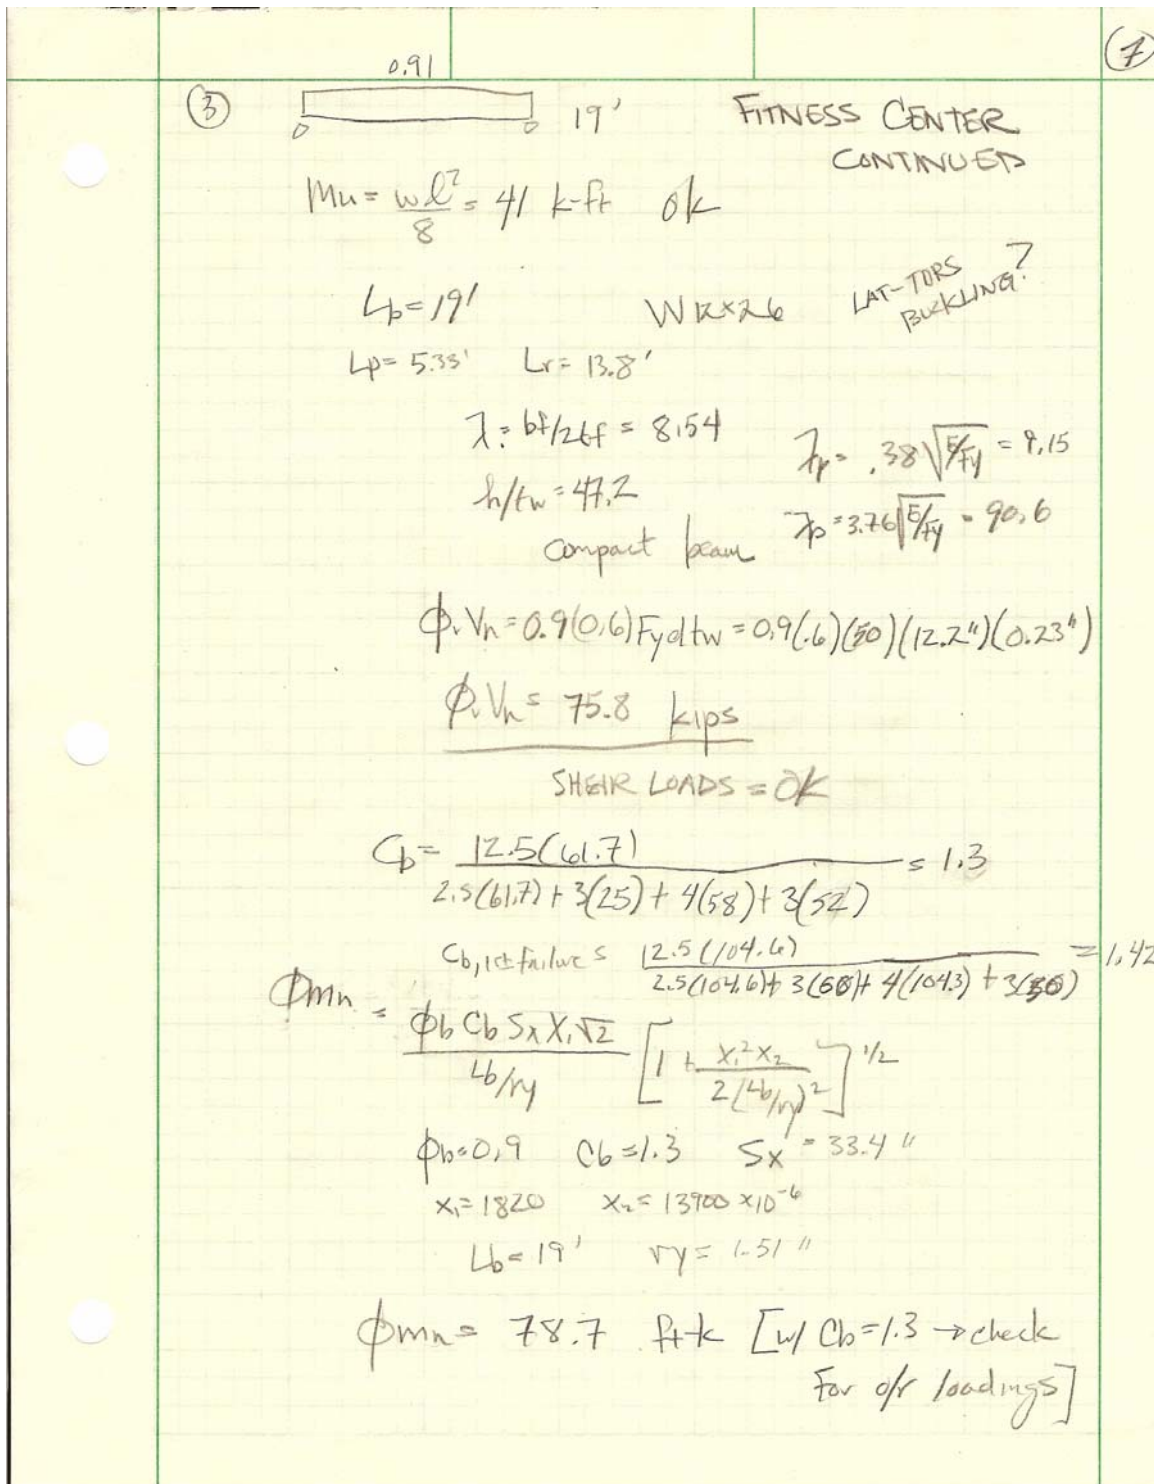 (7)
0.91
(3) 19' FITNESS CENTER
CONTINUED
Mu = wl²/8 = 41 k-ft ok
Lb = 19' W12x26 LAT-TORS BUCKLING?
Lp = 5.33' Lr = 13.8'
λ: bf/2tf = 8.54 λp = .38√E/Fy = 9.15
h/tw = 47.2 λp = 3.76√E/Fy = 90.6
compact beam
ϕvVn = 0.9(0.6)Fydtw = 0.9(.6)(50)(12.2")(0.23")
ϕvVn = 75.8 kips
SHEIR LOADS = OK
Cb = 12.5(61.7) / 2.5(61.7) + 3(25) + 4(58) + 3(52) = 1.3
Cb, 1st failure = 12.5(104.6) / 2.5(104.6) + 3(50) + 4(104.3) + 3(30) = 1.42
ϕmn = ϕb Cb Sx X₁√2 / Lb/ry [1 + X₁²X₂ / 2(Lb/ry)²]^1/2
ϕb = 0.9 Cb = 1.3 Sx = 33.4"
X₁ = 1820 X₂ = 13900 x10⁻⁶
Lb = 19' ry = 1.51"
ϕmn = 78.7 ft-k [w/ Cb = 1.3 → check
For o/r loadings]